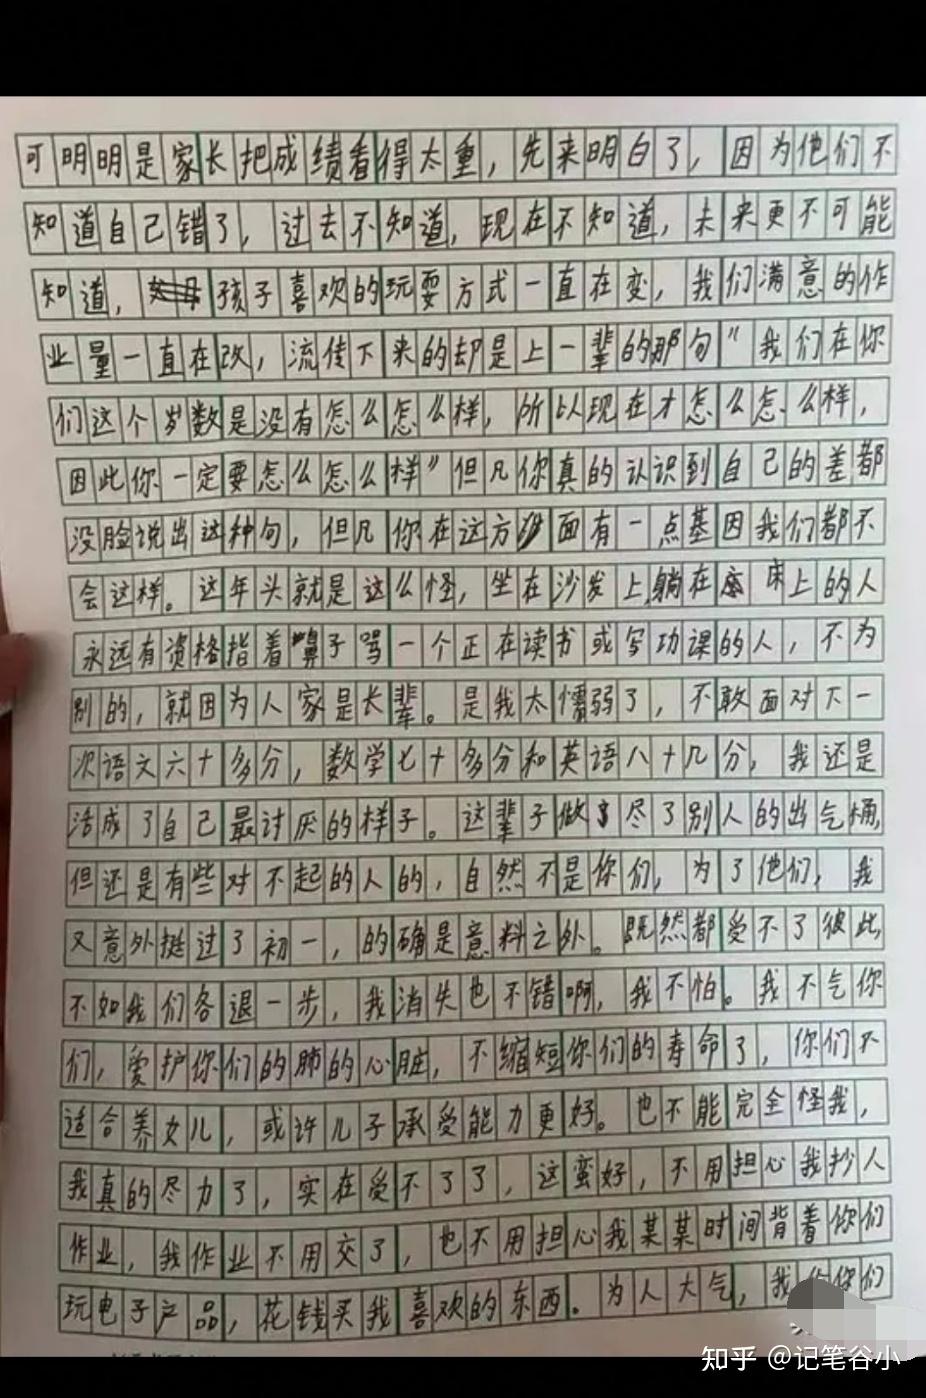 可明明是家长把成绩看得太重，先来明白了，因为他们不
知道自己错了，过去不知道，现在不知道，未来更不可能
知道，孩子喜欢的玩耍方式一直在变，我们满意的作
业量一直在改，流传下来的却是上一辈的那句"我们在你
们这个岁数是没有怎么怎么样，所以现在才怎么怎么样，
因此你一定要怎么怎么样"但凡你真的认识到自己的差都
没脸说出这种句，但凡你在这方面有一点基因我们都不
会这样。这年头就是这么怪，坐在沙发上，躺在床上的人
永远有资格指着鼻子骂一个正在读书或写功课的人，不为
别的，就因为人家是长辈。是我太懦弱了，不敢面对下一
次语文六十多分，数学七十多分和英语八十几分，我还是
活成了自己最讨厌的样子。这辈子做尽了别人的出气桶，
但还是有些对不起的人的，自然不是你们，为了他们，我
又意外挺过了初一，的确是意料之外。既然都受不了彼此，
不如我们各退一步，我消失也不错啊，我不怕。我不气你
们，爱护你们的肺的心脏，不缩短你们的寿命了，你们不
适合养女儿，或许儿子承受能力更好。也不能完全怪我，
我真的尽力了，实在受不了了，这蛮好，不用担心我抄人
作业，我作业不用交了，也不用担心我某某时间背着你们
玩电子产品，花钱买我喜欢的东西。为人大气，我 你们
知乎 @记笔谷小